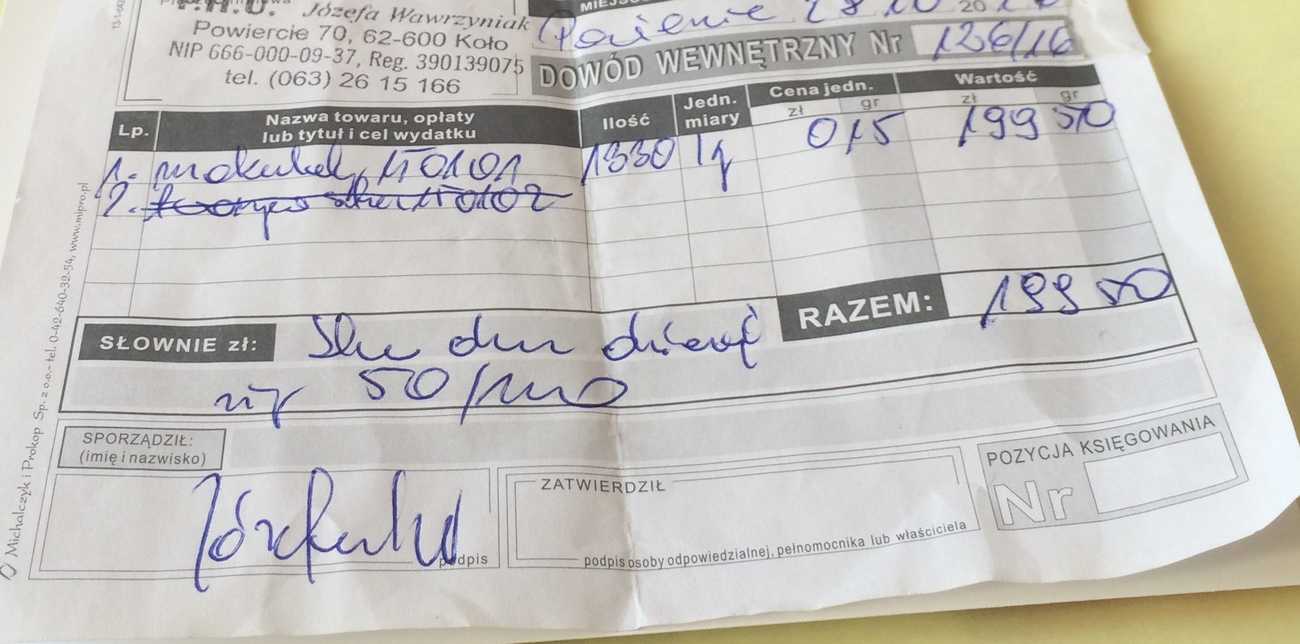 P.H.U. Józefa Wawrzyniak
Powiercie 70, 62-600 Koło
NIP 666-000-09-37, Reg. 390139075
tel. (063) 26 15 166
28 10 20
DOWÓD WEWNĘTRZNY Nr 136/16
Lp. Nazwa towaru, opłaty lub tytuł i cel wydatku Ilość Jedn. miary Cena jedn. zł gr Wartość zł gr
1. makulat. 150101 1330 kg 0 15 199 50
2. 150102
RAZEM: 199 50
SŁOWNIE zł: Sto dziewięć
50/100
SPORZĄDZIŁ:
(imię i nazwisko)
podpis
ZATWIERDZIŁ
podpis osoby odpowiedzialnej, pełnomocnika lub właściciela
POZYCJA KSIĘGOWANIA
Nr
Michalczyk i Prokop Sp. z o.o. - tel. 0-42-640-32-54, www.mipro.pl